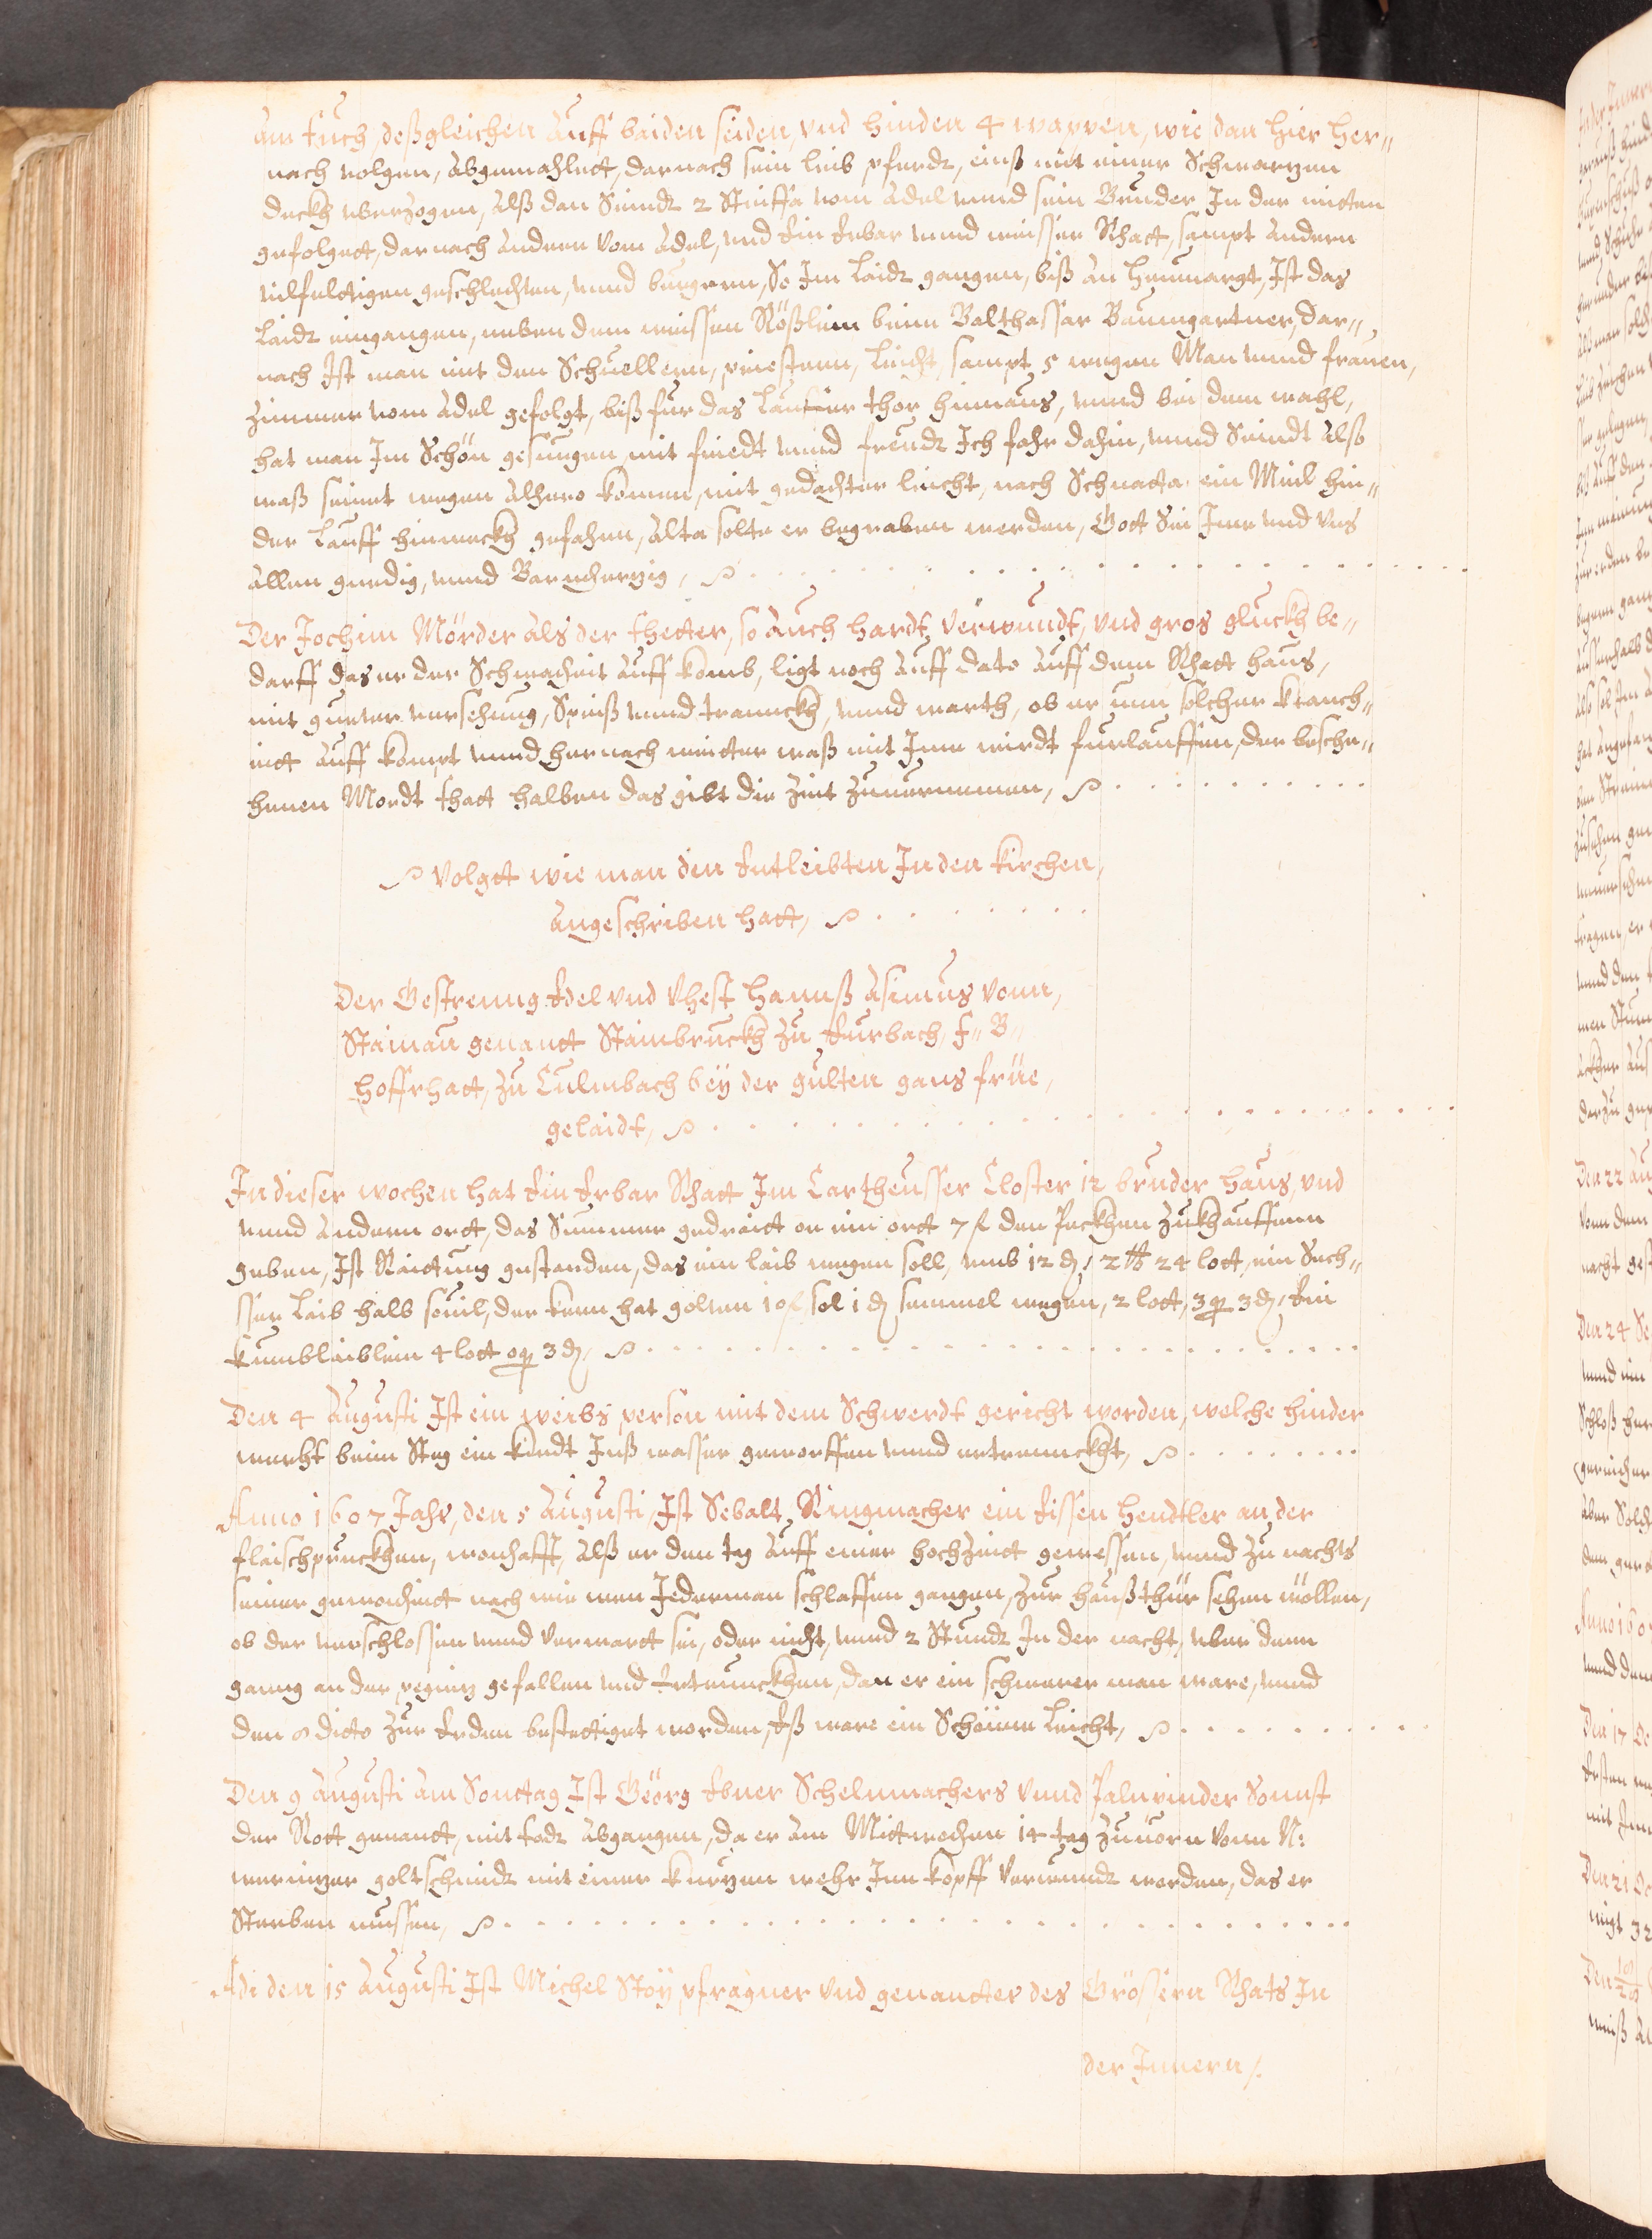 Am tuch, deßgleichen Auff baiden seiden, vnd hinden 4 wappen, wie dan hier her„
nach volgen, Abgemahlett, darnach sein leib pferdt, einß mit einer Schwarzen
deckh vberzogen, Alß dan Seindt 2 Steiffa vom Adel vnnd sein Bruder In der mitten
gefolgett, darnach Andere vom Adel, vnd Ein Erbar vnnd weisser Rhatt, sampt Andern
vilfeltigen geschlechten, vnnd burgern, So Im Laidt gangen, biß An Heumargt, Ist das
Laidt eingangen, neben dem weissen Rößlein beim Balthassar Baumgartner, dar„
nach Ist man mit den Schuellern, priestern, Leicht, sampt 5 wegen Man vnnd frauen,
Zimmer vom Adel gefolgt, biß fur das Lauffer thor hinaus, vnnd bei dem mahl,
hat man Im Schön gesungen, mit friedt vnnd freudt Ich fahr dahin, vnnd Seindt Alß
mit gedachter leicht, nach Schnatta ein Meil hin„
der Lauff hinweckh gefahren, Alta solte er begraben werden, Gott Sei Ime vnd Vns
Allen gnedig, vnnd Barmherzig,
Der Jochim Mörder Als der thetter, so Auch hardt Verwundt, vnd gros gluckh be„
darff das er der Schwacheit Auff komb, ligt noch Auff dato Auff dem Rhatt haus,
mit gueter versehung, Speiß vnnd tranckh, vnnd warth, ob er von solcher kranch„
eitt Auff kompt vnnd hernach weitter waß mit Ime wirdt furlauffen, der besche„
henen Mordt thatt halben das gibt die Zeit Zuuernemen,
Volgtt wie man den Entleibten In den kirchen,
Angeschriben hatt,
Der Gestreng Edel vnd Vhest Hannß Asimus vonn,
Stainau genantt Stainbruckh zu Eurbach, F„ B„
Hoffrhatt, zu Culmbach beÿ der gulten gans früe,
gelaidt,
In dieser wochen hat Ein Erbar Rhatt Im Cartheusser Closter 12 bruder haus, vnd
vnnd Andern ortt, das Summer gedraitt on ein ortt 7 fl den Peckhen Zukhauffenn
geben, Ist Raittung gestanden, das ein laib wegen soll, vmb 12 d, 2 ℔ 24 lott, ein Sech„
sser Laib halb souil, der kern hat golten 10 fl, sol 1 d semmel wegen, 2 lott, 3 q 3 d, Ein
kumblaiblein 4 lott 0 q 3 d,
Den 4 Augusti Ist ein weibs person mit dem Schwerdt gericht worden, welche hinder
beim Steg ein kindt Inß wasser geworffen vnnd ertrenckht,
Anno 1607 Jahr, den 5 Augusti, Ist Sebalt Ringmacher ein Eissen Hendtler an der
fleischpruckhen, wonhafft, Alß er den tag Auff einer hochzeit gewessen, vnnd Zu nachts
seiner gewonheit nach wie nun Jederman schlaffen gangen, Zur Haußthür sehen wöllen,
ob der verschlossen vnnd Verwart sei, oder nicht, vnnd 2 Stundt In der nacht, vber denn
gang an der pegniz gefallen vnd Ertrunckhen, dan er ein schwerer man ware, vnnd
den 8 dicto Zur Erden bestettiget worden, Eß ware ein Schönne Leicht,
Den 9 Augusti Am Sontag Ist Geörg Ebner Schelmmachers vnnd Palnbinder Sonnst
der Rott genantt, mit todt Abgangen, da er Am Mittwochen 14 tag Zuuorn Vonn N:
goltschmidt mit einer kurzen wehr Inn kopff Verwundt worden, das er
Sterben mussen,
Adi den 15 Augusti Ist Michel Stoÿ, pfragner vnd genantter des Grössern Rhats In
der Innern /.